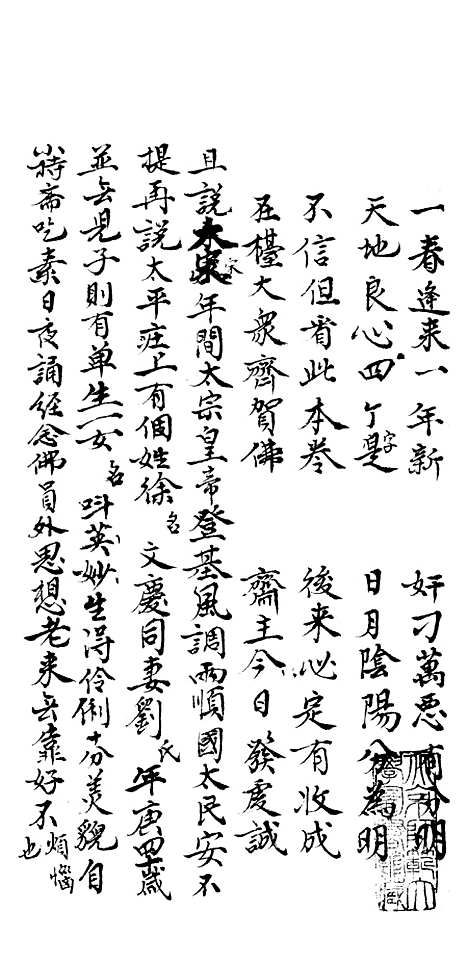 一春逢来一年新 奸刁萬悪有分明
天地良心四个字是 日月陰陽八分為明
不信但看此本卷 後来必定有收成
在檯大衆齊賀佛 齋主今日發虔誠
且說大宋年間太宗皇帝登基風調雨順國太民安不
提再說太平庄上有個姓徐名文慶同妻劉氏年庚四十歲
並無児子則有单生一女名呌英妙生得伶俐十分美貌自
持斋吃素日夜誦經念佛員外思想老来無靠好不煩惱也